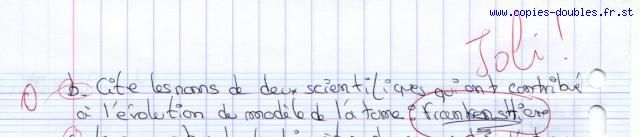 www.copies-doubles.fr.st
Joli !
b. Cite les noms de deux scientifiques qui ont contribué
à l'évolution du modèle de l'atome : Frankenstien